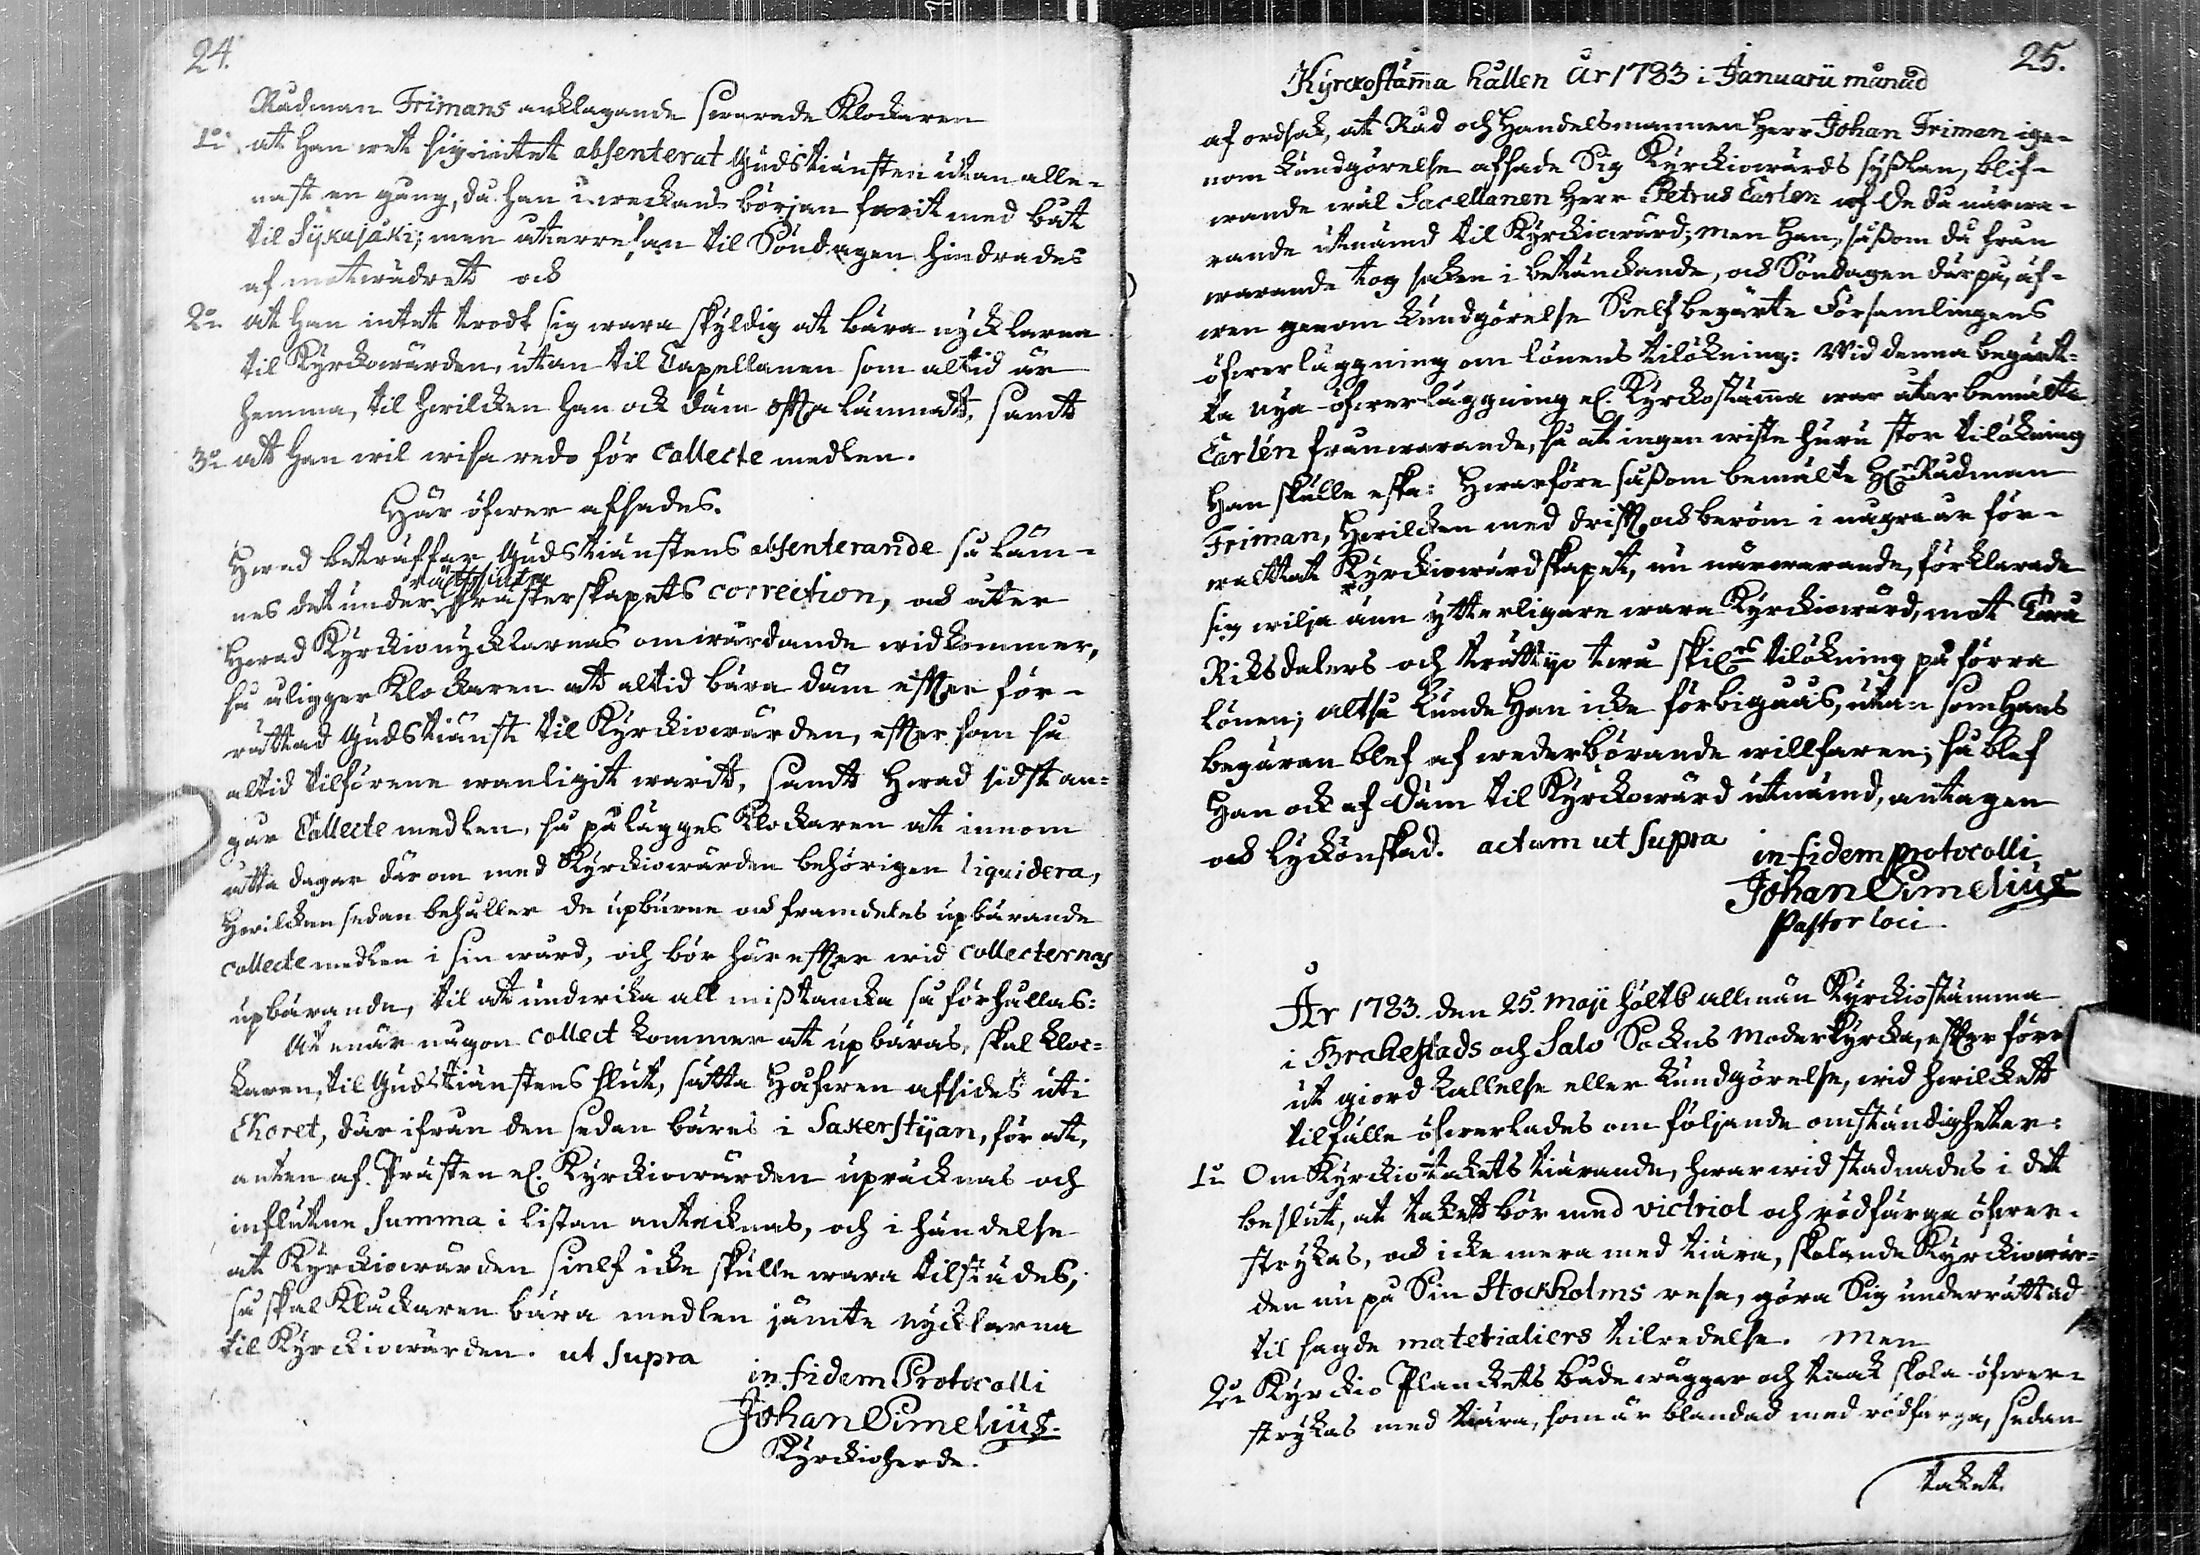 24.
Rådman Frimans anklagande swarade Klockaren
1:o at han wet sig intet absenterat Gudstiänsten utan alle-
nast en gång, då han i weckans början farit med båt
til Sijkajåki; men återresan til Söndagen hindrades
af motwädret och
2:o at han intet trodt sig wara skyldig at bära nycklarna
til Kyrckowärden, utan til Capellanen som altid är
hemma, til hwilcken han ock däm ofta lämnatt, samt
3:o att han wil wisa redo för Collecte medlen.
Här öfwer afsades.
Hwad beträffar Gudstiänstens absenterande så läm-
rättsintre
nes det under Prästerskapets correction, och åter
Hwad Kyrckionycklarnas omwårdande widkommer,
så åligger Klockaren att altid bära däm efter för-
rättad Gudstiänst til Kyrckiowärden, efter som så
altid tilförene wanligit warit, samt Hwad sidst an-
går Collecte medlen, så pålägges Klockaren at innom
åtta dagar där om med Kyrckiowärden behörigen liquidera,
Hwilcken sedan behåller de upburne och framdeles upbärande
collecte medlen i sin wård, och bör här efter wid collecternas
upbärande, til att undwika all misstancka så förhållas:
At enär någon collect kommer at upbäras, skal kloc-
karen, til Gudstiänstens slut, sätta Håfwen afsides uti
Choret, där ifrån den sedan bäres i Sakerstijan, för att,
anten af Prästen el. Kyrckiowärden upräcknas och
influtne Summa i listan antecknas, och i händelse
at Kyrckiowärden sielf icke skulle wara tilstädes,
så skal Klåckaren bära medlen jämte nycklarna
til Kyrckiowärden. ut supra
in fidem Protocolli
Johan Simelius.
Kyrckioherde.
25.
Kyrckostämma hållen År 1783 i Januarii månad
af ordsak, at Råd och Handelsmannen Herr Johan Friman ige-
nom kundgörelse afsade Sig Kyrckiowärds sysslan, blif-
wande wäl Sacellanen Herr Petrus Carlen af De då närwa-
rande utnämd til Kyrckiowärd; men Han, såssom då från
warande tog saken i betänckande, och Söndagen därpå, äf-
wen genom kundgörelse Sielf begärte Församlingens
öfwerläggning om lönens tilökning: Wid denna begärt-
ta nya öfwerläggning el. Kyrckostämma war åter bemälte
Carlén frånwarande, så at ingen wiste huru stor tilökning
Han skulle eska: Hwarföre såssom bemälte H:r Rådman
Friman, Hwilcken med drift och beröm i några år för-
walttat Kyrckiowärdskapet, nu närwarande, förklarade
sig wilja änn ytterligare wara Kyrckiowärd, mot Twå
Riksdalers och trättijo twå skil:rs tilökning på förra
lönen; altså kunde Han icke förbigåås, utan som Hans
begäran blef af wederbörande willfaren; så blef
Han ock af Däm til Kyrckowärd utnämd, antagen
och lyckönskad. actum ut supra
in fidem protocolli
Johan Simelius
Pastor loci.
År 1783. den 25. Maji höltts allmän Kyrckiostämma
i Brahestads och Salo Sockns Moderkyrcka, efter förr
ut giord kallelse eller kundgörelse, wid hwilckett
tilfälle öfwerlades om följande omständigheter:
1:o Om Kyrckiotakets tiärande, hwarwid stadnades i det
beslut, at taket bör med victriol och rödfärga öfwer-
strykas, och icke mera med tiära, skolande Kyrckiowär-
den nu på Sin Stockholms resa, göra Sig underrättad
til sagde materialiers tilredelse. Men
2:o Kyrckio Planckets både wäggar och taak skola öfwer-
strykas med tiära, som är blandad med rödfärga, sedan
taket